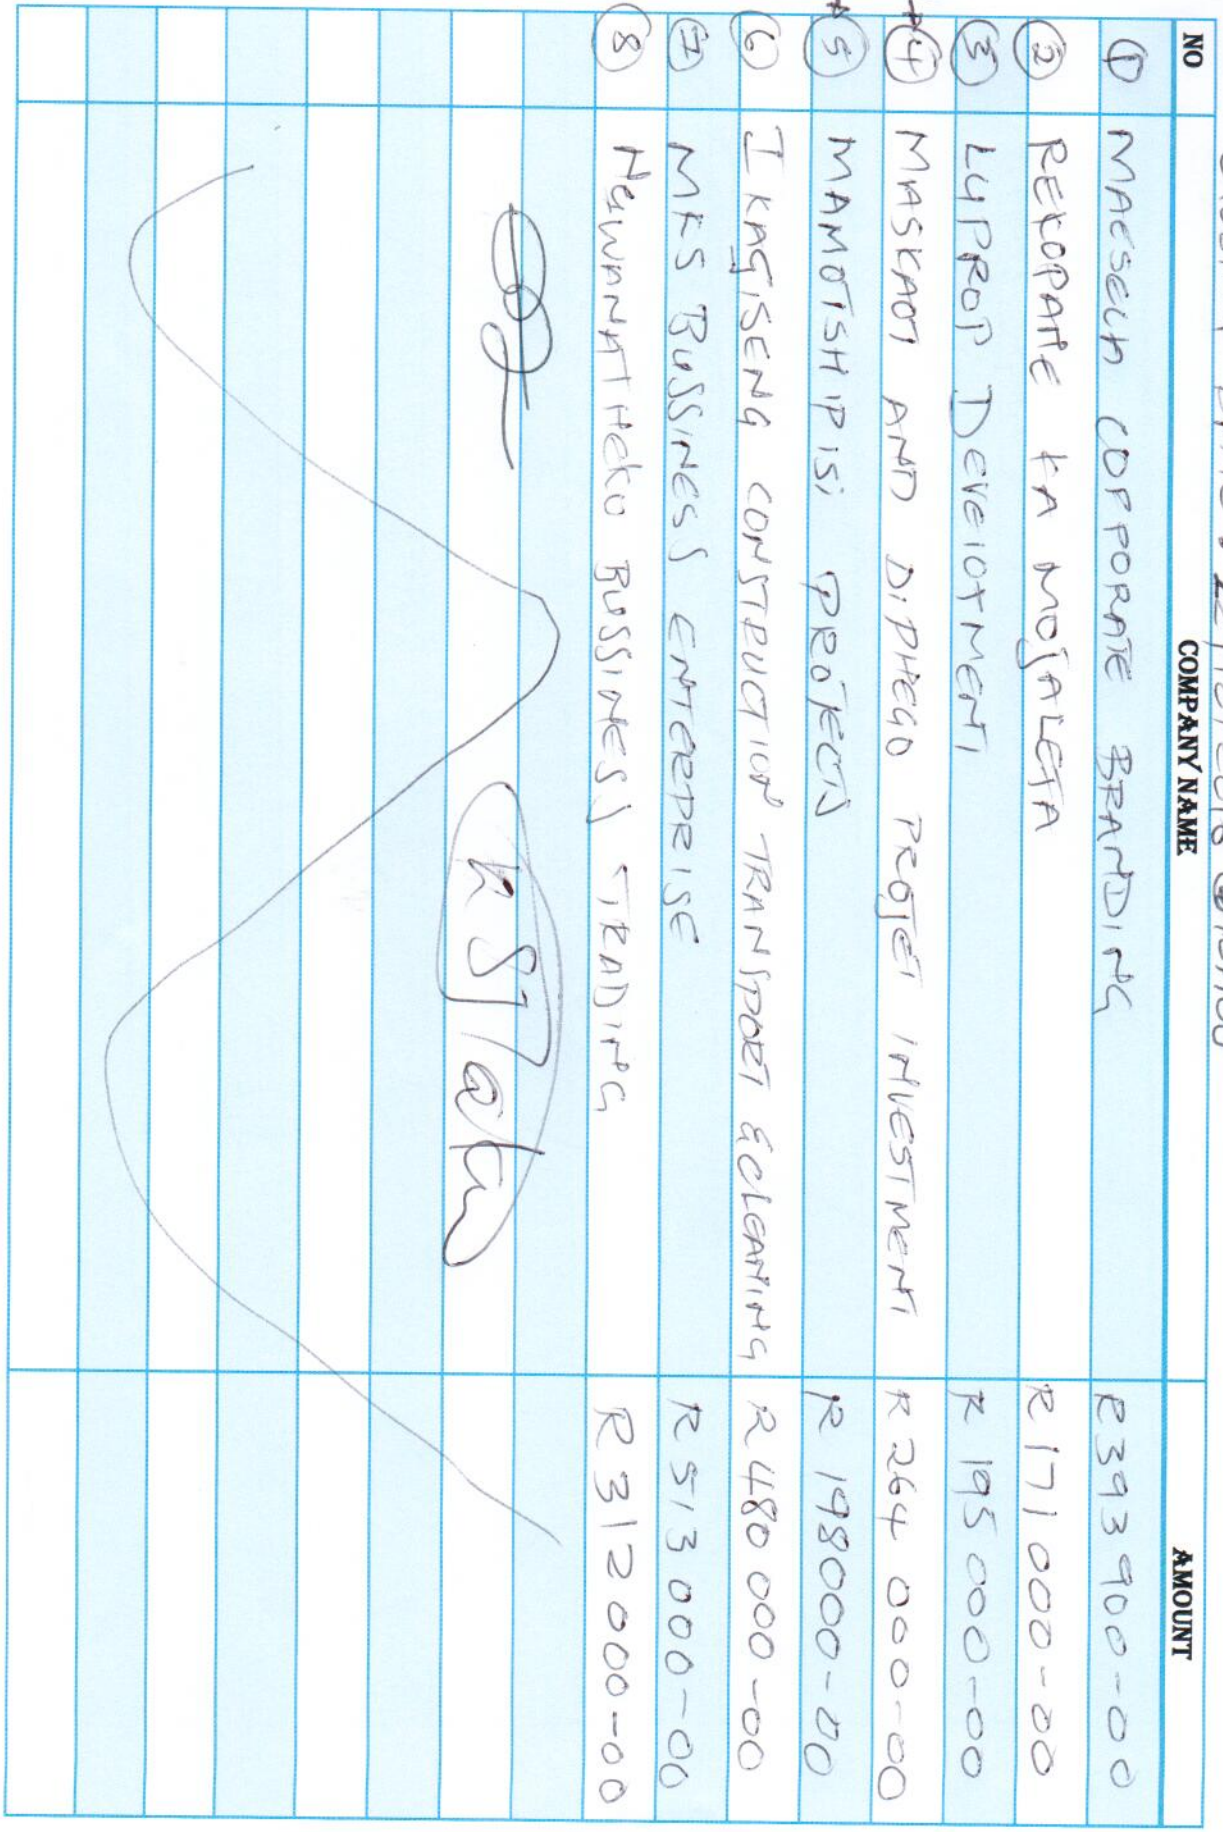 NO COMPANY NAME AMOUNT
1 MAESELA CORPORATE BRANDING R393 900-00
2 REKOPANE KA MOJALEFA R171 000-00
3 LUPROP DEVELOTMENT R 195 000-00
4 MASKAOT AND DIPHEGO PROJET INVESTMENT R 264 000-00
5 MAMOTSHIPISI PROJECTS R 198000-00
6 IKAGISENG CONSTRUCTION TRANSPORT & CLEANING R480 000-00
7 MKS BUSSINESS ENTERPRISE R 513 000-00
8 BUSSINESS TRADING R 312 000-00